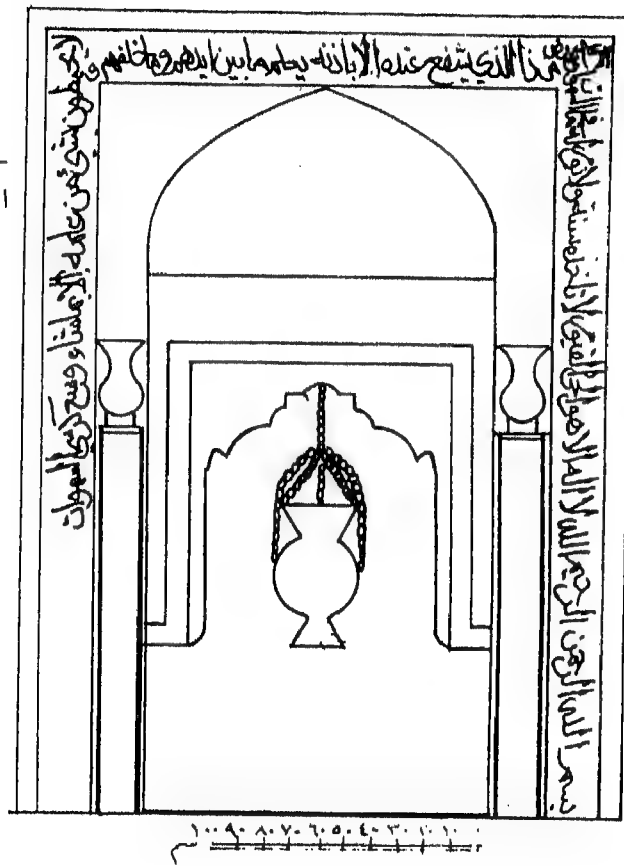 بسم الله الرحمن الرحيم الله لا اله الا هو الحي القيوم لا تاخذه سنة ولا نوم له ما في السموات
من ذا الذي يشفع عنده الا باذنه يعلم ما بين ايديهم وما خلفهم و
لا يحيطون بشئ من علمه الا بما شاء وسع كرسيه السموات
١٠٠ ٩٠ ٨٠ ٧٠ ٦٠ ٥٠ ٤٠ ٣٠ ٢٠ ١٠ ٠